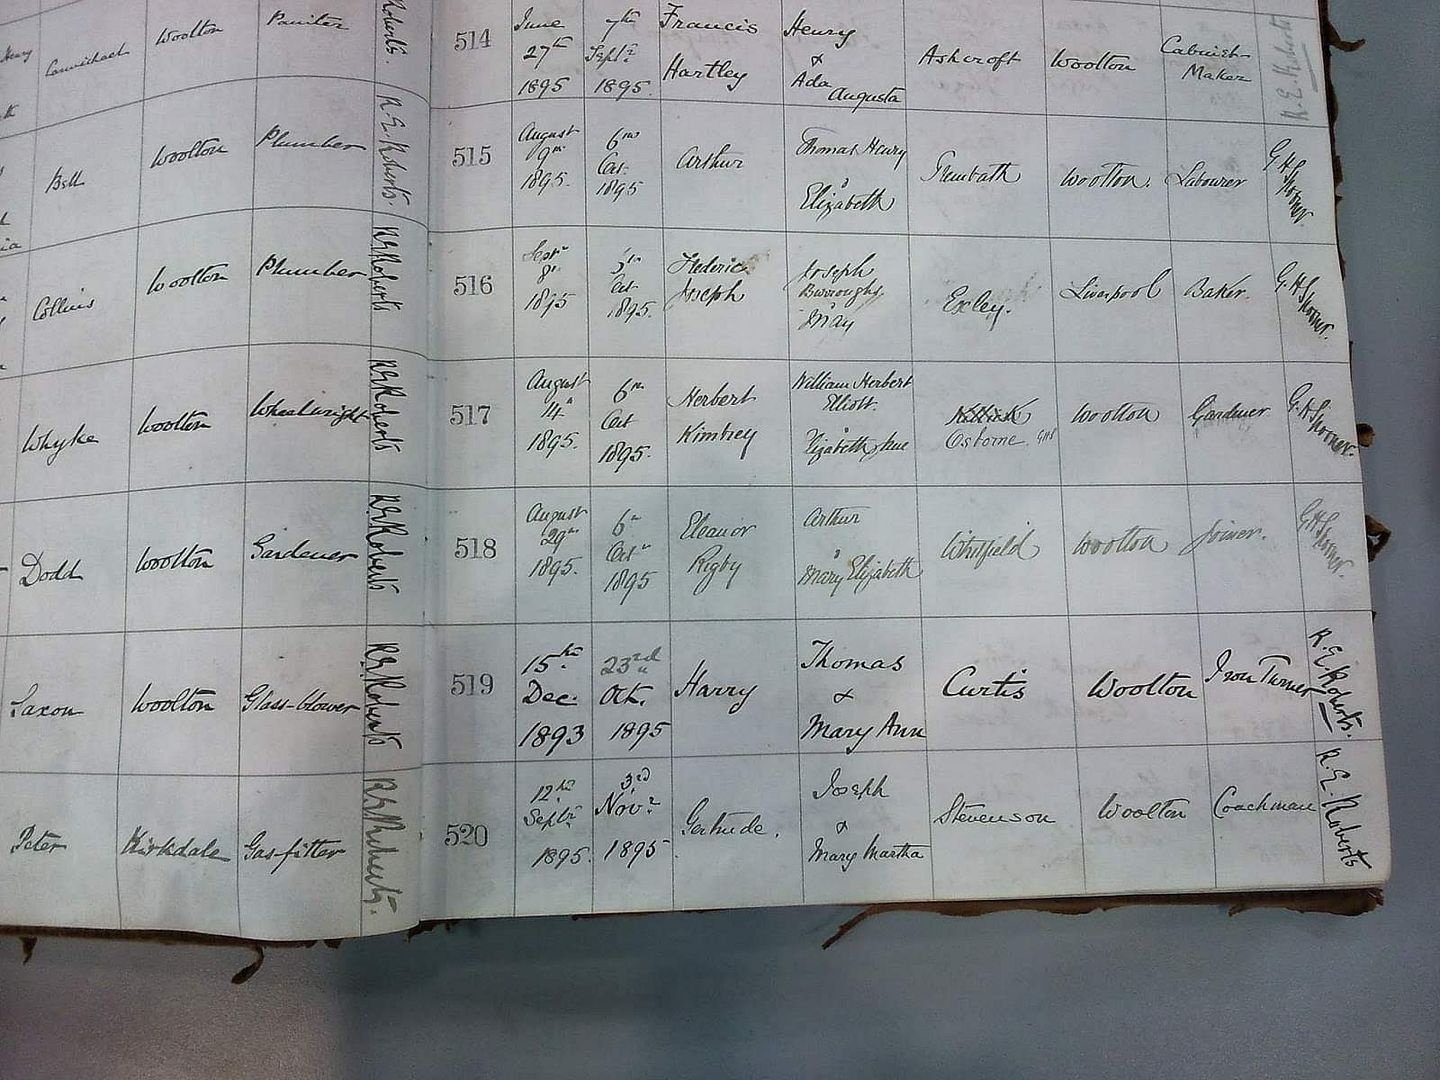 Henry
Carmichael
Woolton
Painter
Roberts.
Bell
Woolton
Plumber
R. E. Roberts
Collins
Woolton
Plumber
R E Roberts
Whyke
Woolton
Wheelwright
R E Roberts
Dodd
Woolton
Gardener
R E Roberts
Saxon
Woolton
Glass-blower
R E Roberts
Peter
Kirkdale
Gas-fitter
R E Roberts.
514
June
27th
1895
7th
Septr
1895.
Francis
Hartley
Henry
&
Ada
Augusta
Ashcroft
Woolton
Cabinet
Maker
R. E. Roberts
515
August
9th
1895.
6th
Oct.
1895
Arthur
Thomas Henry
&
Elizabeth
Woolton.
Labourer
G H Spooner.
516
Septr
8th
1895
Oct
1895.
Frederick
Joseph
Joseph
Burroughs
&
May
Exley.
Liverpool
Baker.
G. H Spooner.
517
August
14th
1895.
6th
Oct
1895.
Herbert
Kimbrey
William Herbert
Elliott.
&
Elizabeth Sue
Osborne GHS
Woolton
Gardener
G. H Spooner.
518
August
29th
1895.
6th
Octr
1895
Eleanor
Rigby
Arthur
&
Mary Elizabeth
Whitfield
Woolton
Joiner.
G H Spooner.
519
15th
Dec.
1893
23rd
Oct.
1895
Harry
Thomas
&
Mary Ann
Curtis
Woolton
Iron Turner
R. E. Roberts.
520
12th
Septr
1895.
3rd
Novr
1895
Gertrude.
Joseph
&
Mary Martha
Stevenson
Woolton
Coachman
R. E. Roberts